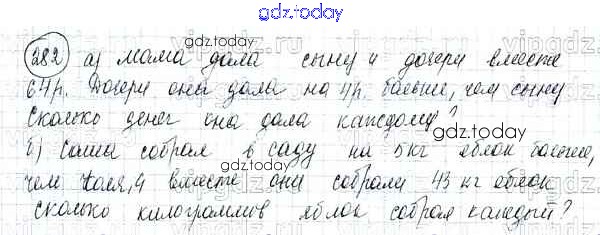 gdz.today
282 а) Мама дала сыну и дочери вместе
64р. Дочери она дала на 4р. больше, чем сыну
Сколько денег она дала каждому?
gdz.today
б) Саша собрал в саду на 5кг яблок больше,
чем Коля, и вместе они собрали 43 кг яблок
сколько килограммив яблок собрал каждый?
gdz.today